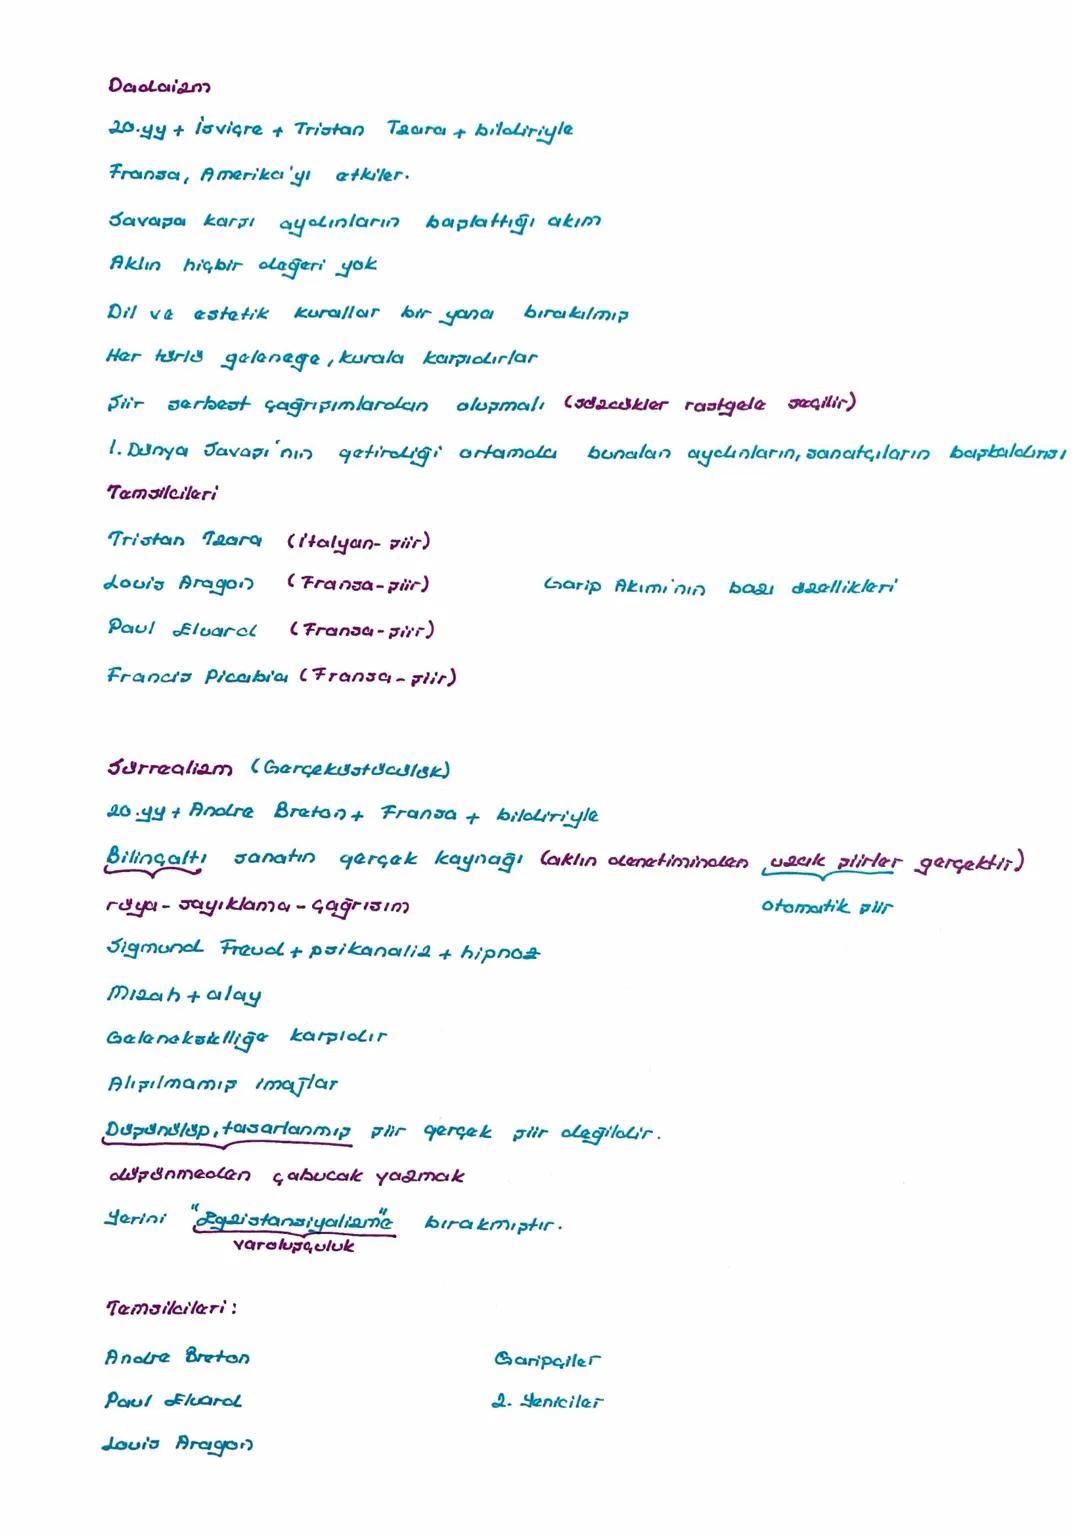 Dadaizm
20.yy + İsviçre + Tristan Tzara + bildiriyle
Fransa, Amerika'yı etkiler.
Savaşa karşı aydınların başlattığı akım
Aklın hiçbir değeri yok
Dil ve estetik kurallar bir yana bırakılmış
Her türlü geleneğe, kurala karşıdırlar
Şiir serbest çağrışımlardan oluşmalı (sözcükler rastgele seçilir)
1. Dünya Savaşı'nın getirdiği ortamda bunalan aydınların, sanatçıların başkaldırısı
Temsilcileri
Tristan Tzara (İtalyan- şiir)
Louis Aragon (Fransa-şiir) Garip Akımı'nın bazı özellikleri
Paul Eluard (Fransa-şiir)
Francis Picabia (Fransa-şiir)
Sürrealizm (Gerçeküstücülük)
20.yy + Andre Breton + Fransa + bildiriyle
Bilinçaltı sanatın gerçek kaynağı (aklın denetiminden uzak şiirler gerçektir)
rüya- sayıklama - çağrısım otomatik şiir
Sigmund Freud + psikanaliz + hipnoz
Mizah + alay
Gelenekselliğe karşıdır
Alışılmamış imajlar
Düşünülüp, tasarlanmış şiir gerçek şiir değildir.
düşünmeden çabucak yazmak
Yerini "Egzistansiyalizme" bırakmıştır.
varoluşçuluk
Temsilcileri:
Andre Breton Garipçiler
Paul Eluard 2. Yeniciler
Louis Aragon